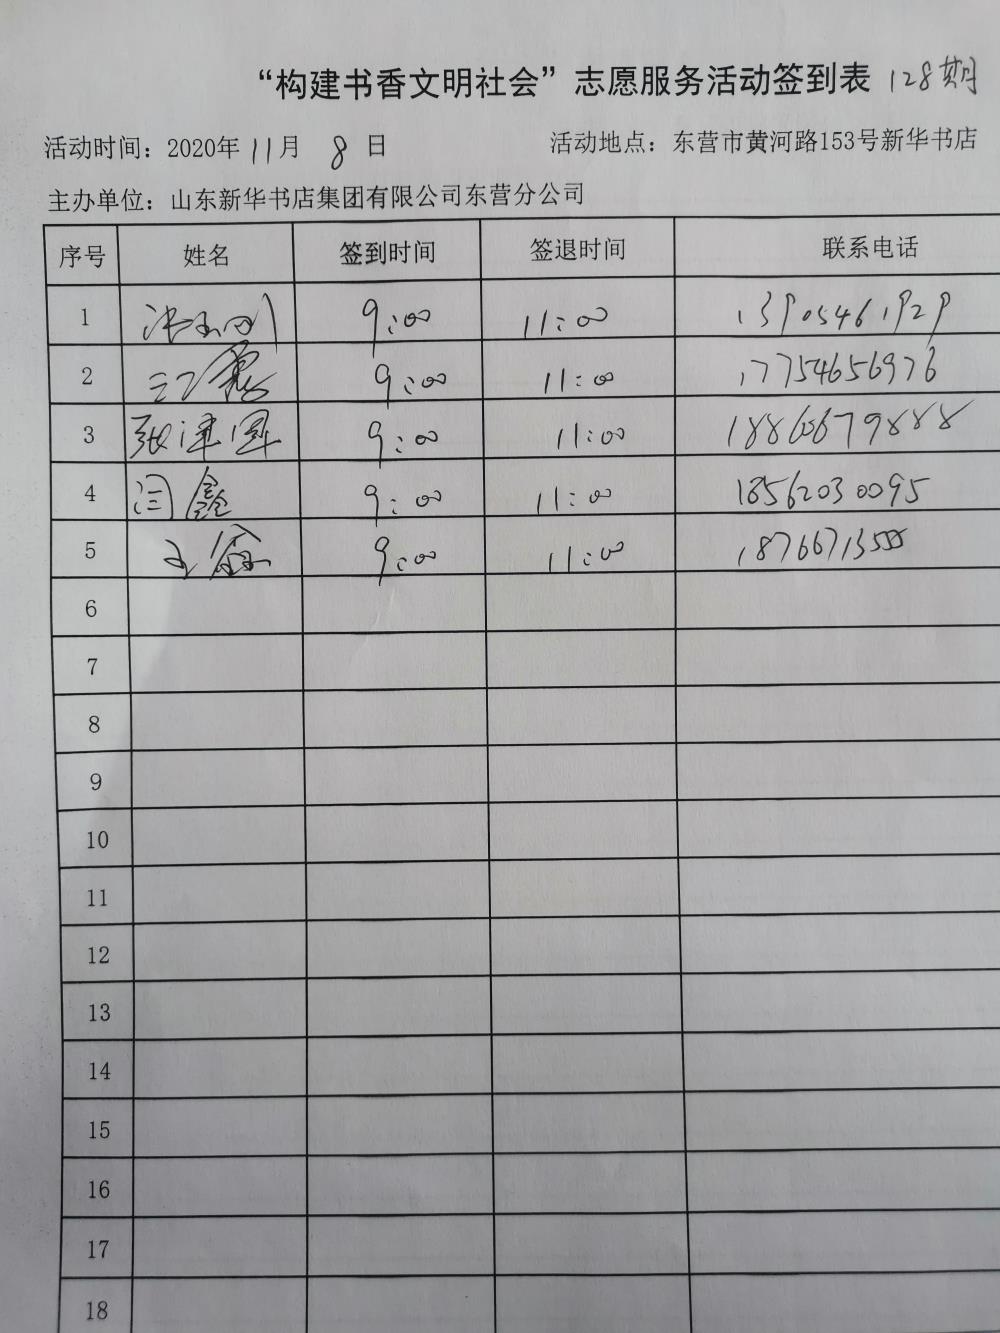 “构建书香文明社会”志愿服务活动签到表 128期
活动时间：2020年 11月 8 日 活动地点：东营市黄河路153号新华书店
主办单位：山东新华书店集团有限公司东营分公司
序号 姓名 签到时间 签退时间 联系电话
1 9:00 11:00 13905461929
2 9:00 11:00 17754656976
3 张津军 9:00 11:00 18860679888
4 闫鑫 9:00 11:00 18562030095
5 9:00 11:00 18766713555
6
7
8
9
10
11
12
13
14
15
16
17
18